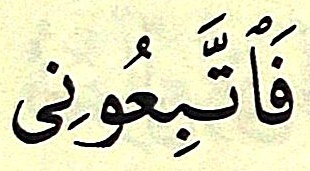 فَٱتَّبِعُونِى